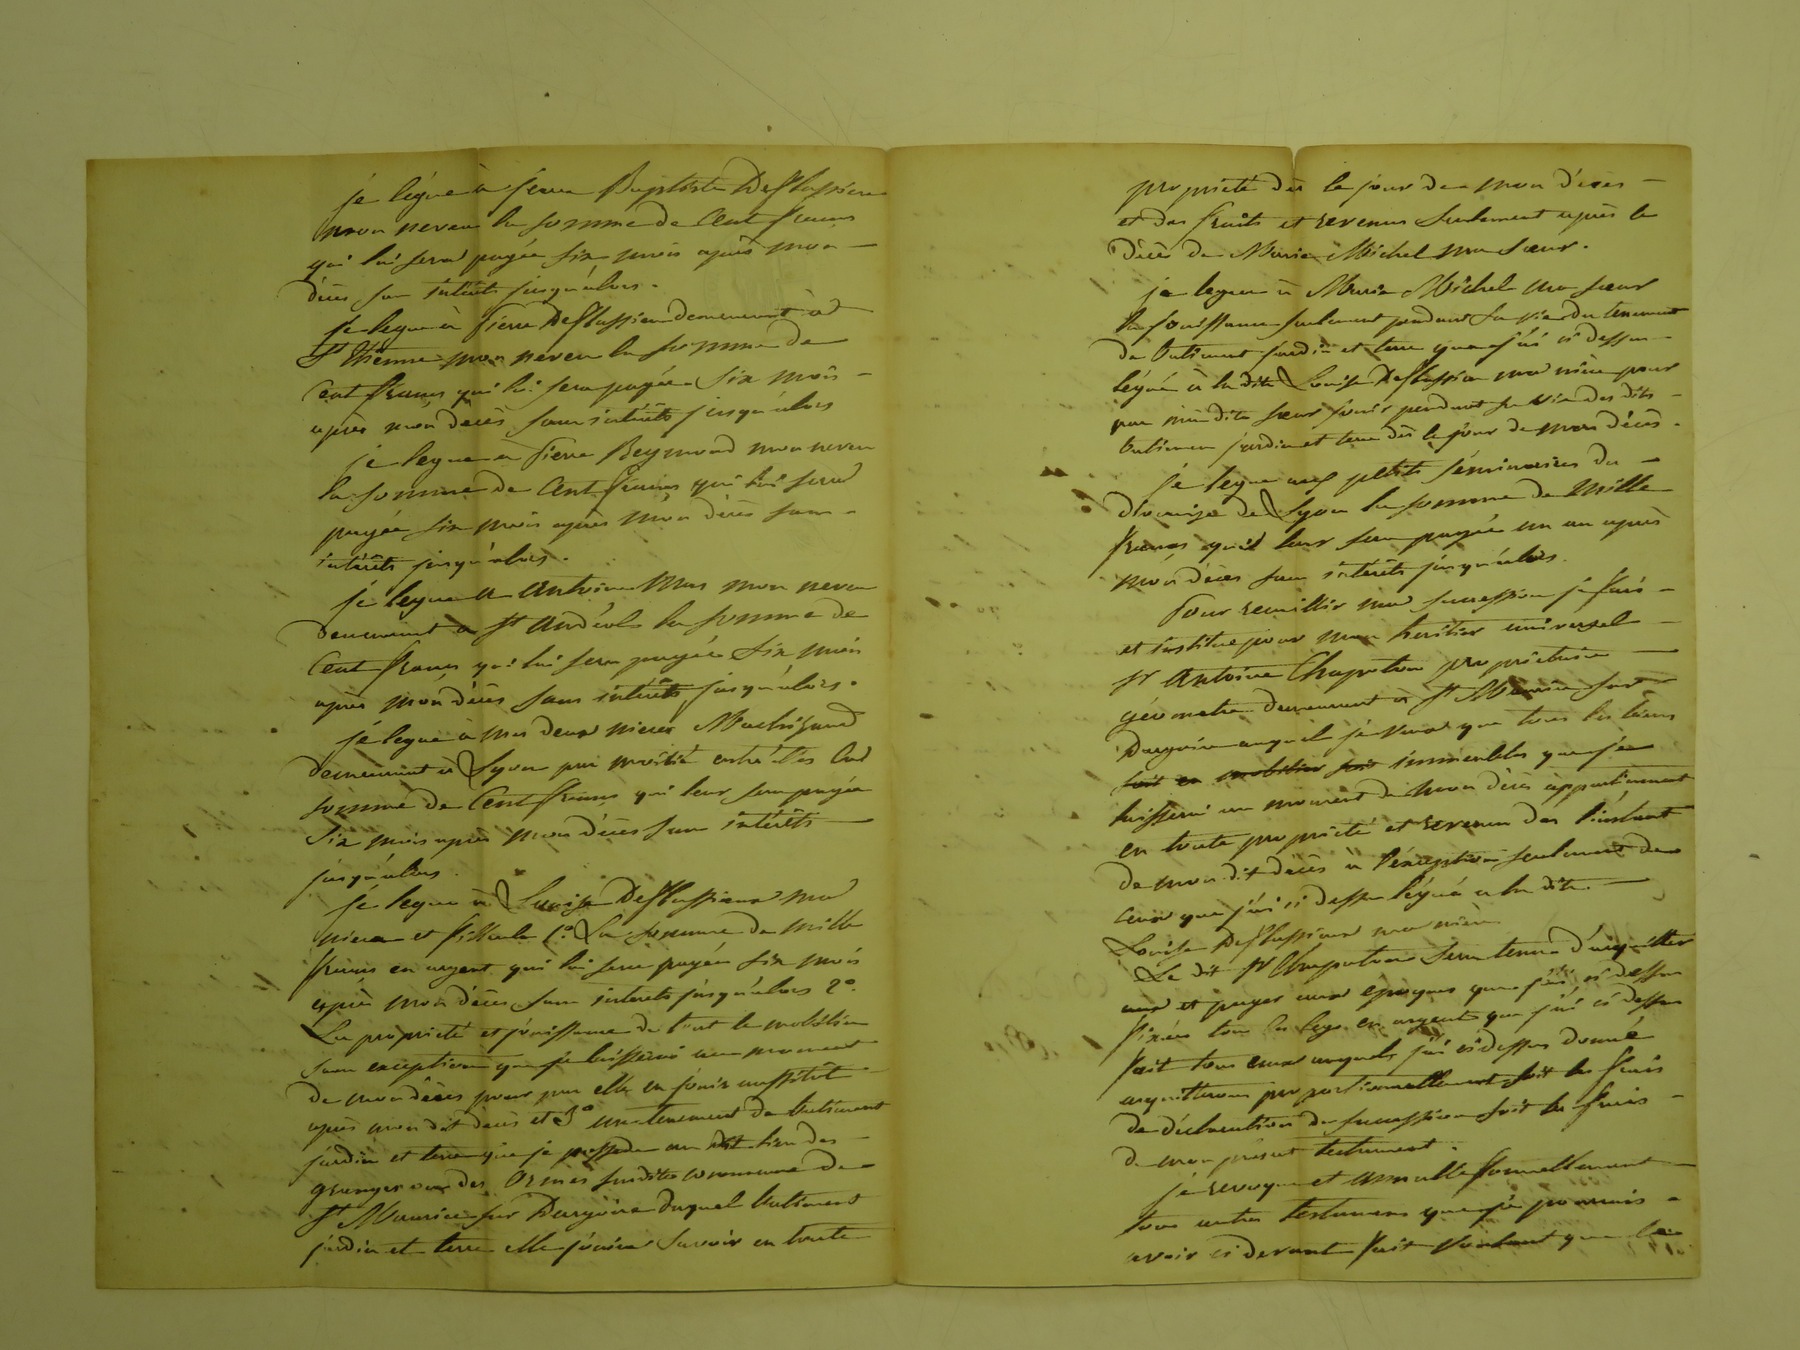 je lègue à jean Baptiste Desflassieux
mon neveu la somme de Cent francs
qui lui sera payée six mois après mon
décès san intérêts jusqu'alors.
je lègue à Pierre Desflassieu demeurant à
St Etienne mon neveu la somme de
Cent francs qui lui sera payée six mois
après mon décès sans intérêts jusqu'alors
je legue à Pierre Reymond mon neveu
la somme de Cent francs qui lui sera
payée six mois après mon décès sans
intérêts jusqu'alors.
je legue a Antoine Mas mon neveu
demeurant a St Andéol la somme de
Cent francs qui lui sera payée six mois
après mon décès sans intérêts jusqu'alors.
je legue à mes deux nieces
demeurant à Lyon par moitié entre elles la
somme de Cent francs qui leur sera payée
six mois après mon décès sans intérêts
jusqu'alors.
je legue à Louise Desflassieux ma
niece et filleule 1º La somme de mille
francs en argent qui lui sera payée six mois
après mon décès sans interets jusqu'alors 2º.
La propriété et jouissance de tout le mobilier
sans exception que je laisserai au moment
de mon décès pour par elle en jouir aussitôt
après mon dit decès et 3º un tenement de batiment
jardin et terre que je possede au dit lieu des
granges ou des Ormes susdite commune de
St Maurice sur Dargoire duquel batiment
jardin et terre elle jouira savoir en toute
propriété dès le jour de mon décès
et des fruits et revenus seulement après le
décès de Marie Michel ma sœur.
je legue à Marie Michel ma sœur
la jouissance seulement pendant sa vie du tenement
de batiment jardin et terre que j'ai ci dessus
légué à la dite Louise Desflassieux ma nièce pour
par ma dite sœur jouir pendant sa vie des dits
batimens jardin et terre dès le jour de mon décès.
je legue aux petits séminaires du
diocaise de Lyon la somme de Mille
francs qui leur sera payée un an après
mon décès sans intérêts jusqu'alors.
Pour recueillir ma succession je fais
et institue pour mon heritier universel
sr Antoine Chapotton propriétaire
géometre demeurant à St Maurice sur
Dargoire auquel je veux que tous les biens
soit en mobilier soit immeubles que je
laisserai au moment de mon décès appartiennent
en toute propriété et revenu des l'instant
de mon dit décès à l'exception seulement de
ceux que j'ai ci dessus légué a la dite
Louise Desflassieux ma nièce
Le dit sr Chapotton sera tenu d'acquitter
et payer aux epoques que j'ai ci dessus
fixées tous les legs en argent que j'ai ci dessus
fait tous ceux auxquels j'ai ci dessus donné
acquitteront proportionnellement soit les frais
de déclaration de succession soit les frais
de mon présent testament.
je revoque et annulle formellement
tous autres testamens que je pourrais
avoir ci devant fait voulant que le